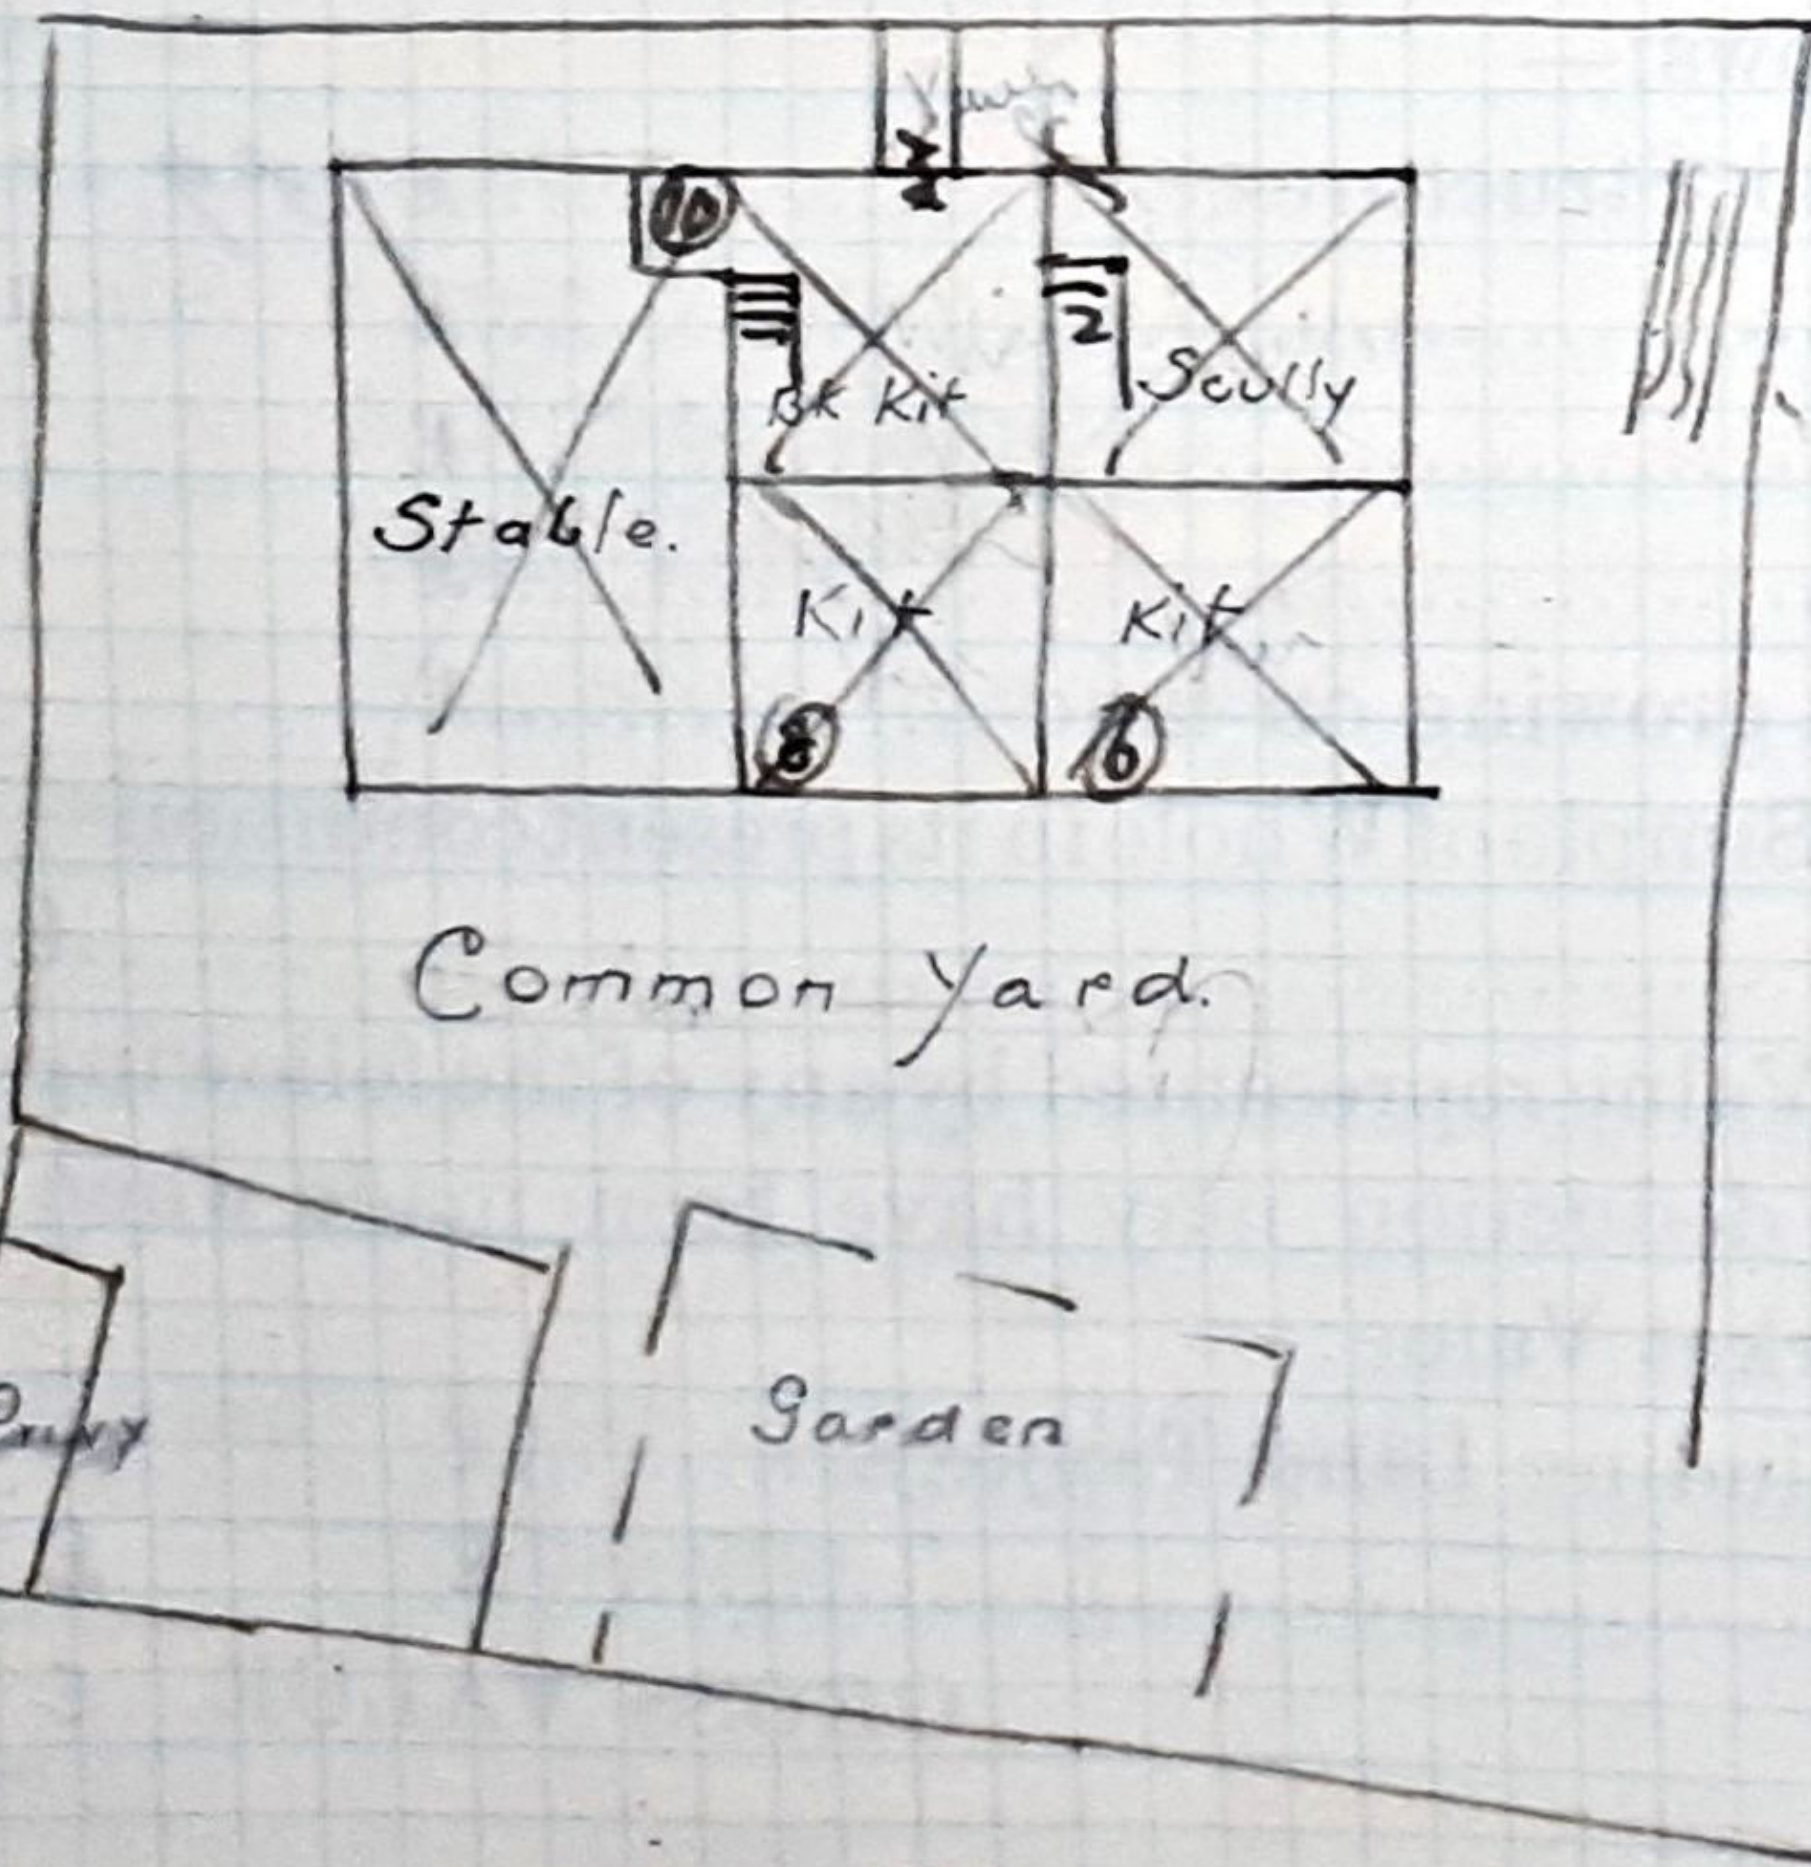 10
2
Bk Kit
Scully
Stable.
Kit
Kit
8
6
Common Yard.
Garden